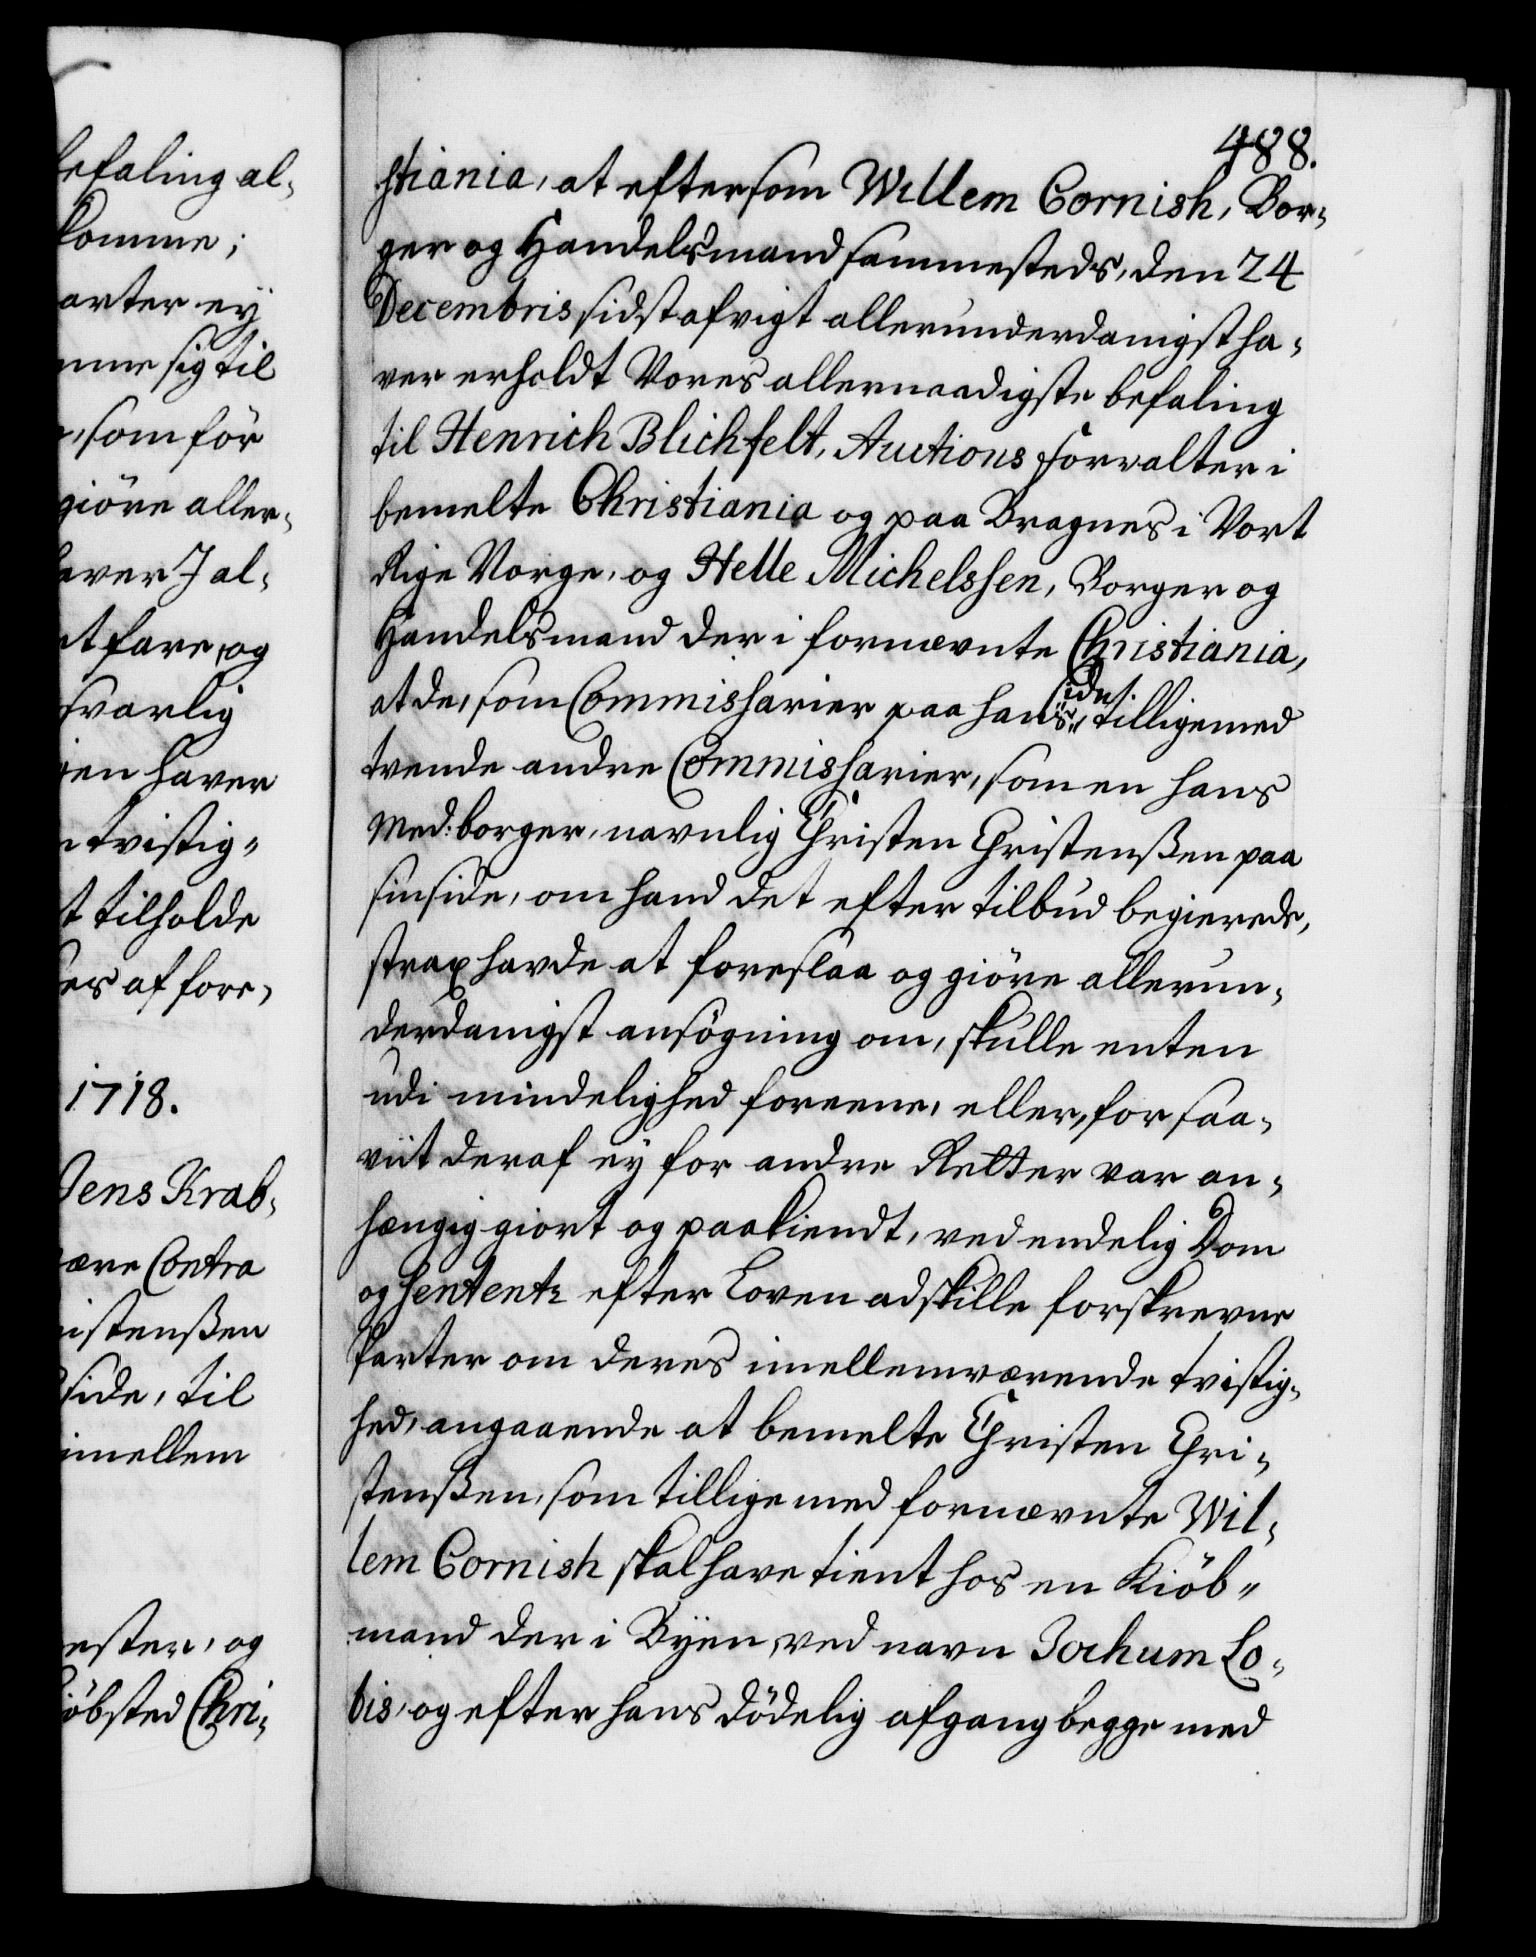 befaling al-
komme;
arter ey
mme sig til
, som för
giöre aller-
haver I al-
et fare, og
svarlig
gen haver
n tvistig-
t tilholde
es af fore,
1718.
Jens Krab-
være Contra
istenßen
side, til
imellem
ester, og
iöbsted Chri-
488.
stiania, at eftersom Willem Cornish, Bor-
ger og Handelsmand sammesteds, den 24
Decembris sidst afvigt allerunderdanigst ha-
ver erholdt Vores allernaadigste befaling
til Henrich Blichfelt, Auctions forvalter i
bemelte Christiania og paa Bragnes i Vort
Rige Norge, og Helle Michelssen, Borger og
Handelsmand der i fornævnte Christiania,
side,
at de, som Commissarier paa hans tilligemed
tvende andre Commissarier, som en hans
Med-borger, navnlig Christen Christenßen paa
sin side, om hand det efter tilbud begierede,
strax havde at foreslaa og giöre allerun-
derdanigst ansögning om, skulle enten
udi mindelighed foreene, eller, for saa-
vit deraf ey for andre Retter var an-
hængig giort og paakiendt, ved endelig Dom
og Sententz efter Loven adskille forskrevne
Parter om deres imellemværende tvistig-
hed, angaaende at bemelte Christen Chri-
stenßen, som tillige med fornævnte Wil-
lem Cornish skal have tient hos en Kiöb-
mand der i Byen, ved navn Jochum Lo-
bis, og efter hans dödelig afgang begge med